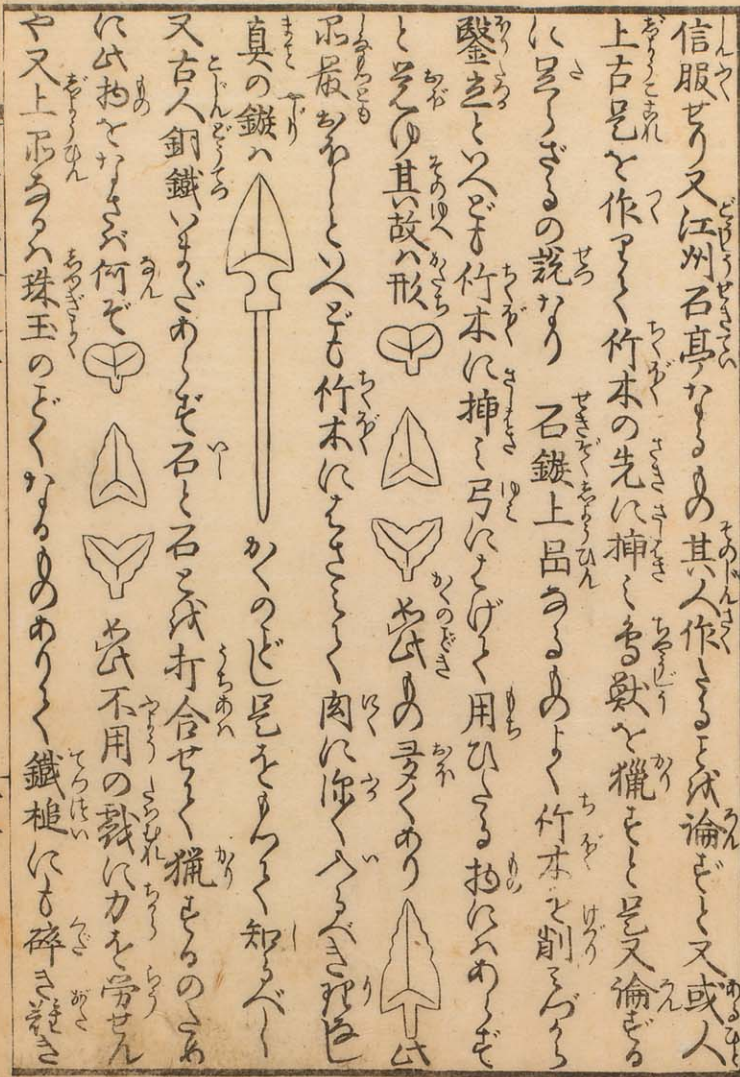 信服せり又江州石亭なるもの其人作たるを論ずと又或人
上古是を作りて竹木の先に挿み鳥獣を猟すと是又論ずる
に足らざるの説なり 石鏃上品なるものよく竹木を削みづから
鑿立といへども竹木に挿み弓にはげて用ひたる物にはあらず
と覚ゆ其故は形 如此もの多くあり 此
品最おほしといへども竹木にはさみて肉に深く入るべき理なし
真の鏃は かくのごとし是をもつて知るべし
又古人銅鐵いまだあらず石と石とを打合せて猟するのため
に此物をなさば何ぞ 如此不用の戯に力を労せん
や又上品なるは珠玉のごとくなるものありて鐵槌にも砕き難き